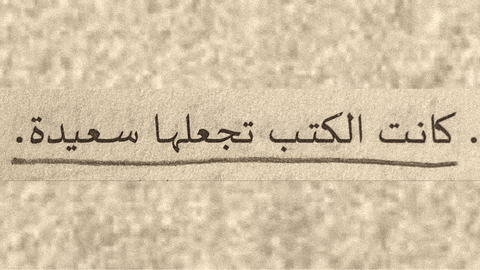 . كانت الكتب تجعلها سعيدة.